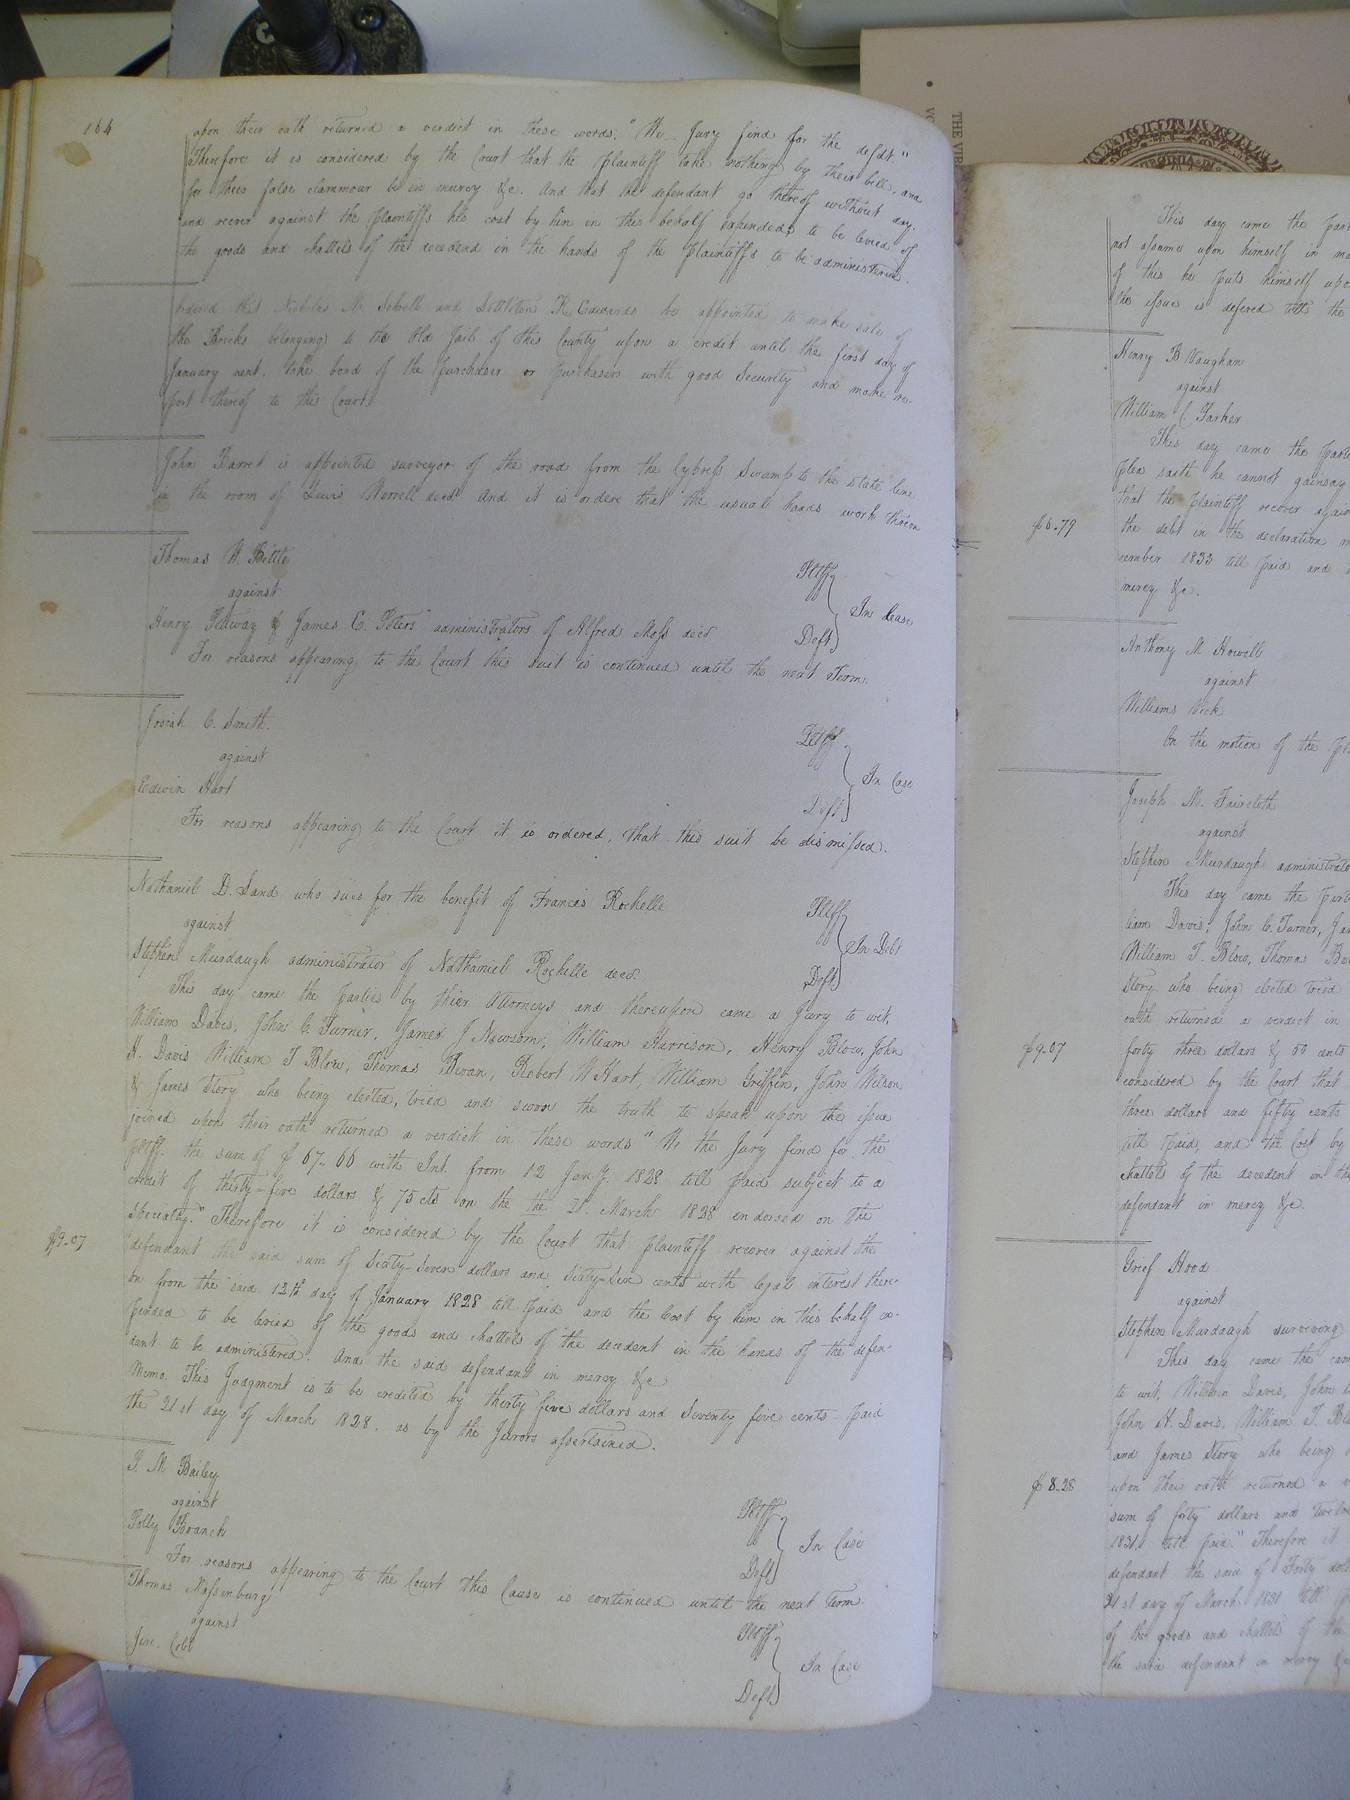 164
upon their oath returned a verdict in these words. "We Jury find for the defdt."
Therefore it is considered by the Court that the plaintiff take nothing by their bill, and
for their false clammour be in mercy &c. And that the defendant go thereof without day,
and recover against the plaintiffs his cost by him in this behalf expended, to be levied of
the goods and chattels of the decedend in the hands of the plaintiffs to be administered.
Ordered that Nicholas M. Sebrell and Littleton R. Edwards be appointed to make sale of
the Bricks belonging to the Old Jail of this County upon a credit until the first day of
January next, take bond of the purchaser or purchasers with good Security and make re-
port thereof to the Court.
John Barret is appointed surveyor of the road from the Cypress Swamp to the state line
in the room of Lewis Worrell decd. And it is order that the usual hands work thereon
Thomas W. Bittle Pltff
against In Case
Henry Pettway & James E. Peters administrators of Alfred Moss decd Deft
For reasons appearing to the Court this suit is continued until the next Term.
Josiah C. Smith Pltff
against In Case
Edwin Hart Deft
For reasons appearing to the Court it is ordered, that this suit be dismissed.
Nathaniel D. Sand who sues for the benefit of Francis Rochelle Pltff
against In Debt
Stephen Murdaugh administrator of Nathaniel Rochelle decd. Deft
This day came the parties by thier Attorneys and thereupon came a Jury to wit,
William Davis, John C. Turner, James J Newsom, William Harrison, Henry Blow, John
H. Davis William T Blow, Thomas Bowan, Robert W Hart, William Griffin, John Wilson
& James Story who being elected, tried and sworn the truth to speak upon the issue
joined upon their oath returned a verdict in these words "We the Jury find for the
pltff. the sum of $ 67-66 with Int. from 12 Jany. 1828 till paid subject to a
credit of thirty-five dollars & 75 cts on the the 21. March 1828 endorsed on the
specialty." Therefore it is considered by the Court that plaintiff recover against the
$9.07
defendant the said sum of Sixty-Seven dollars and Sixty-Six cents with legal interest there-
on from the said 12th day of January 1828 till paid and the Cost by him in this behalf ex-
pended to be levied of the goods and chattels of the decedent in the hands of the defen-
dant to be administered. And the said defendant in mercy &c
Memo. This Judgment is to be credited by thirty five dollars and Seventy five cents paid
the 21st day of March 1828. as by the Jurors assertained.
T. M Bailey Pltff
against In Case
Polly Branch Deft
For reasons appearing to the Court this Cause is continued until the next Term.
Thomas Massenburg Pltff
against In Case
Jere. Cobb Deft
This day came the part
not assume upon himself in ma
of this he puts himself upo
the issue is defered till the
Henry B Vaughan
against
William C. Parker
This day came the parte
plea saith he cannot gainsay
that the Plaintiff recover again
$6.79
the debt in the declaration m
cember 1833 till paid and
mercy &c.
Anthony M Howell
against
Williams Vick
On the motion of the Pl
Joseph M. Faircloth
against
Stephen Murdaugh administrato
This day came the part
liam Davis, John C. Turner, Ja
William T. Blow, Thomas Bo
Story who being elected tried
oath returned a verdict in
$9.07
forty three dollars & 50 cents
considered by the Court that
three dollars and fifty cents
till paid, and the Cost by
chattels of the decedent in th
defendant in mercy &c.
Grief Hood
against
Stephen Murdaugh surviving
This day came the
to wit, William Davis, John
John H. Davis, William T. Bl
and James Story who being
$8.28
upon their oath returned a
sum of forty dollars and twelve
1831, till paid." Therefore it
defendant the said of Forty doll
21st day of March 1831 till
of the goods and chattels of the
the said defendant in mercy &c
THE VIR
VIRGINIA